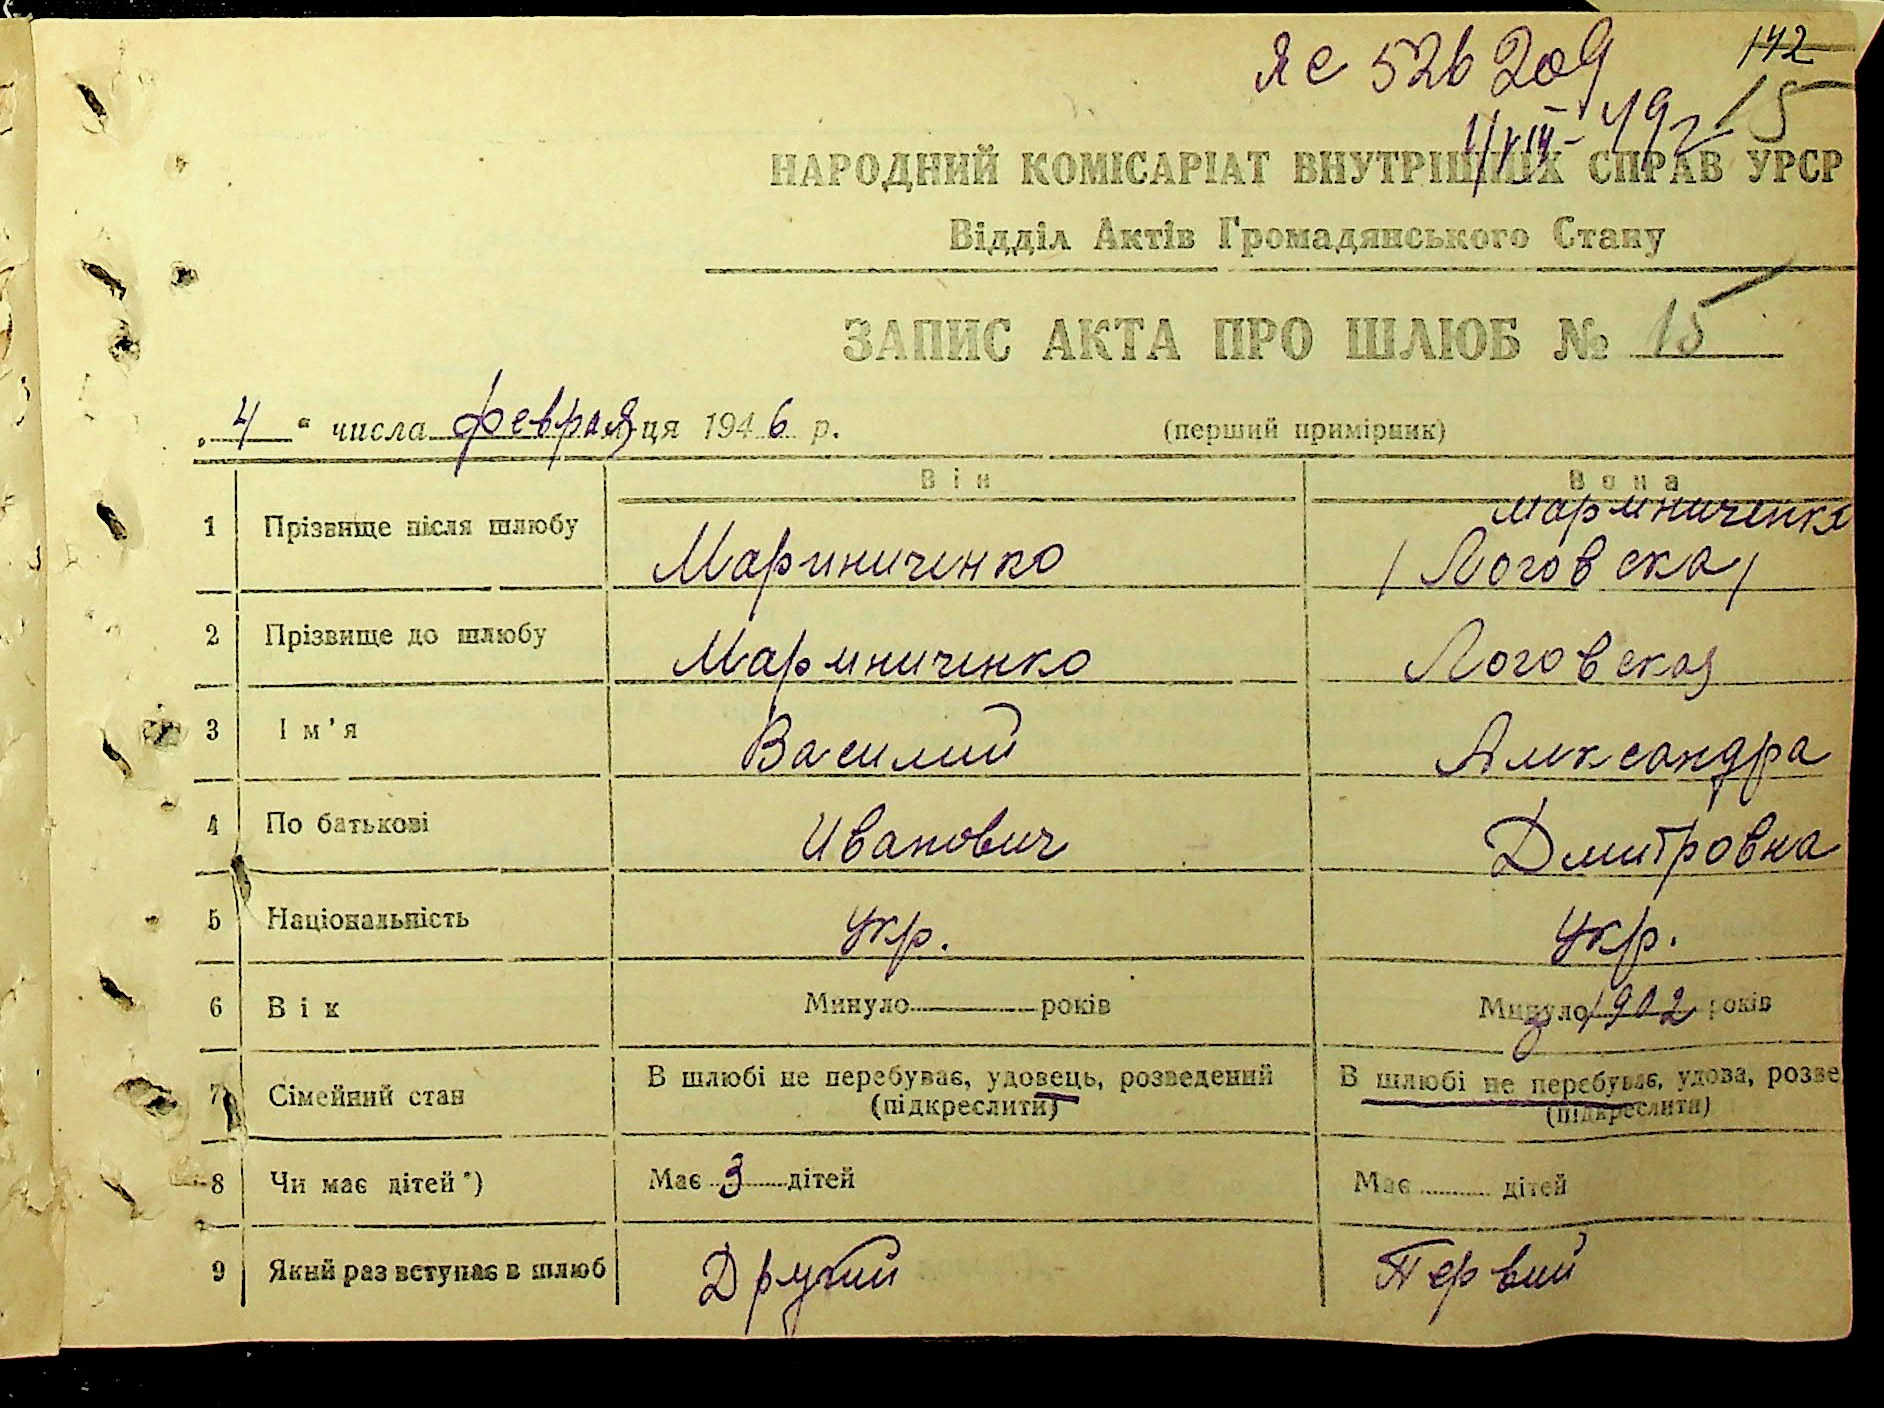 ЯС 526209
142
4/VIII-49г
15
НАРОДНИЙ КОМІСАРІАТ ВНУТРІШНІХ СПРАВ УРСР
Відділ Актів Громадянського Стану
ЗАПИС АКТА ПРО ШЛЮБ № 15
„4“ числа февраля м-ця 1946 р. (перший примірник)
Він Вона
1 Прізвище після шлюбу Мариниченко Мариниченко
/Логовска/
2 Прізвище до шлюбу Мариниченко Логовская
3 Ім’я Василий Александра
4 По батькові Иванович Дмитровна
5 Національність Укр. Укр.
6 Вік Минуло років Минуло 1902 років
7 Сімейний стан В шлюбі не перебуває, удовець, розведений В шлюбі не перебуває, удова, розве
(підкреслити) (підкреслити)
8 Чи має дітей*) Має 3 дітей Має дітей
9 Який раз вступає в шлюб Другий Первий